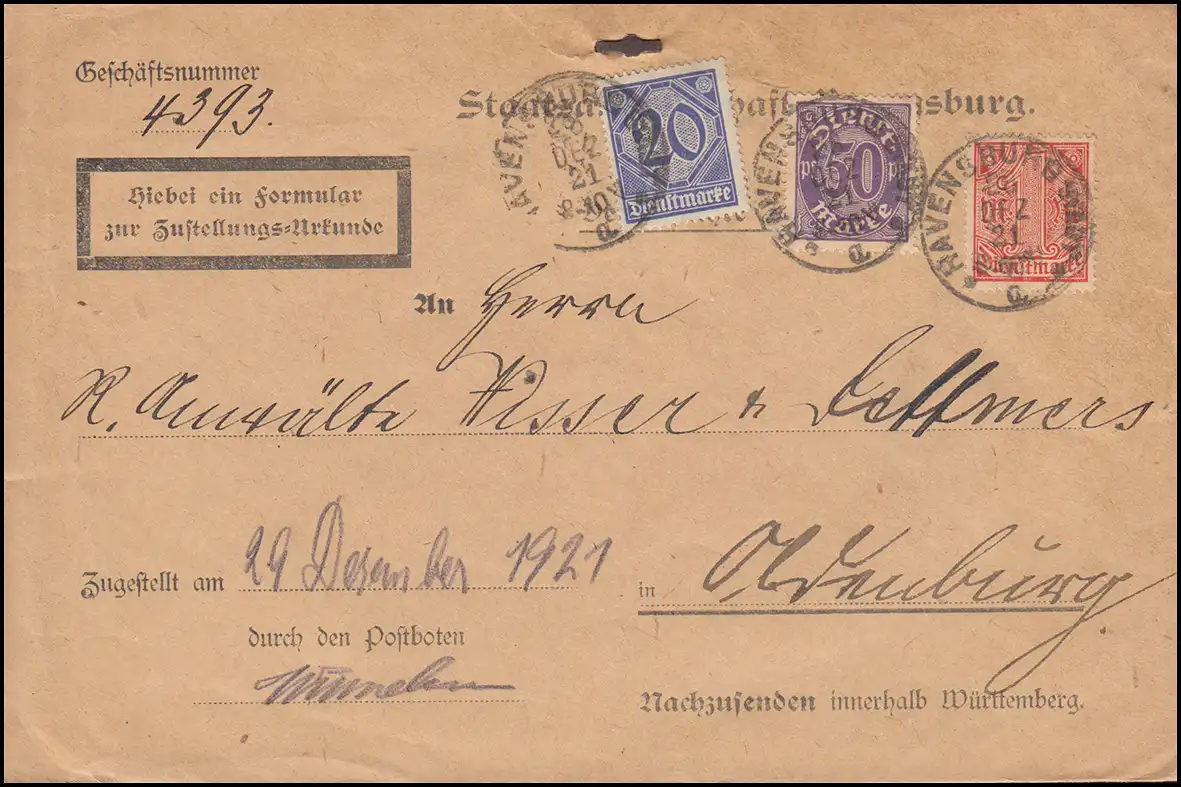 Geschäftsnummer
4393.
Staatsa haft sburg.
Hiebei ein Formular
zur Zustellungs-Urkunde
20
Dienstmarke
50
Dienstmarke
RAVENSBURG
DEZ
21
An Herrn
R. Anwälte Wisser & Dettmers
Zugestellt am 29 Dezember 1921
durch den Postboten
in Oldenburg
Nachzusenden innerhalb Württemberg.